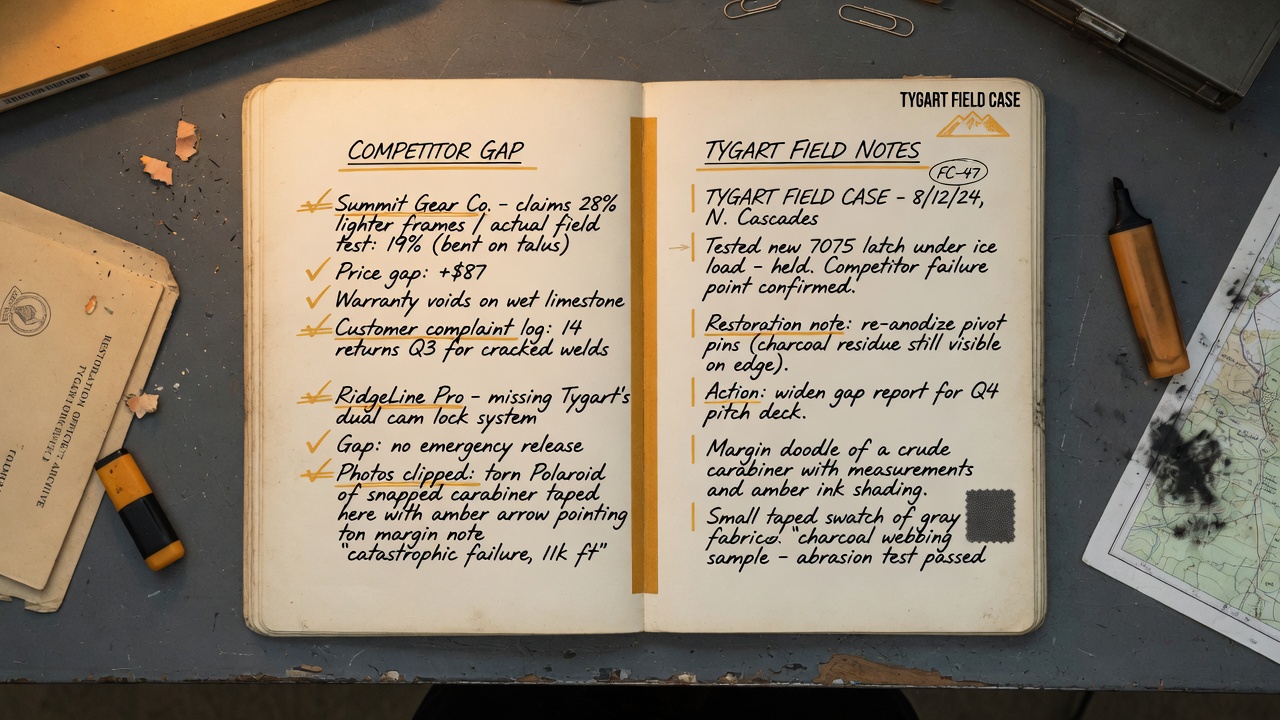 COMPETITOR GAP
Summit Gear Co. – claims 28%
lighter frames / actual field
test: 19% (bent on talus)
Price gap: +$87
Warranty voids on wet limestone
Customer complaint log: 14
returns Q3 for cracked welds
RidgeLine Pro – missing Tygart's
dual cam lock system
Gap: no emergency release
Photos clipped: torn Polaroid
of snapped carabiner taped
here with amber arrow pointing
ton margin note
"catastrophic failure, 11k ft"
TYGART FIELD CASE
TYGART FIELD NOTES
FC-47
TYGART FIELD CASE – 8/12/24,
N. Cascades
Tested new 7075 latch under ice
load – held. Competitor failure
point confirmed.
Restoration note: re-anodize pivot
pins (charcoal residue still visible
on edge).
Action: widen gap report for Q4
pitch deck.
Margin doodle of a crude
carabiner with measurements
and amber ink shading.
Small taped swatch of gray
"charcoal webbing
sample – abrasion test passed
RESTORATION ARCHIVE